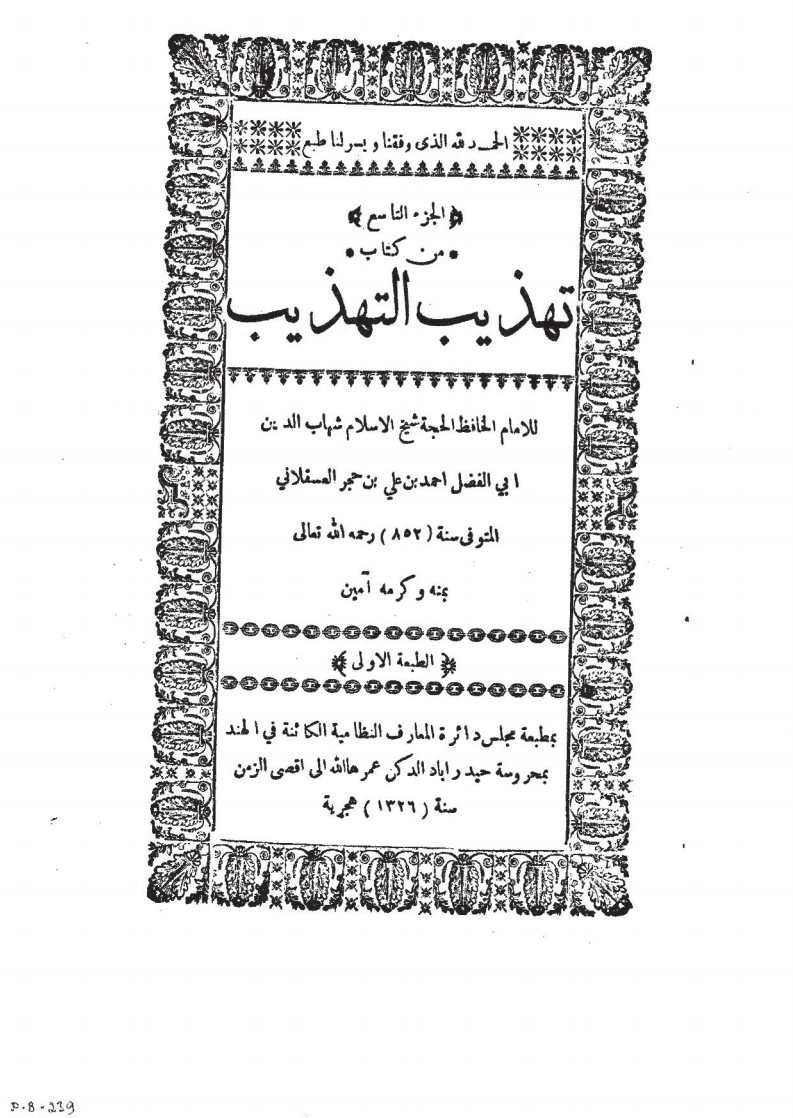 الحمد لله الذى وفقنا ويسر لنا طبع
الجزء التاسع
من كتاب
تهذيب التهذيب
للامام الحافظ الحجة شيخ الاسلام شهاب الدين
ابي الفضل احمد بن علي بن حجر العسقلاني
المتوفى سنة (٨٥٢) رحمه الله تعالى
بمنه وكرمه آمين
الطبعة الاولى
بمطبعة مجلس دائرة المعارف النظامية الكائنة في الهند
بمحروسة حيدراباد الدكن عمرها الله الى اقصى الزمن
سنة (١٣٢٦) هجرية
P-8-239